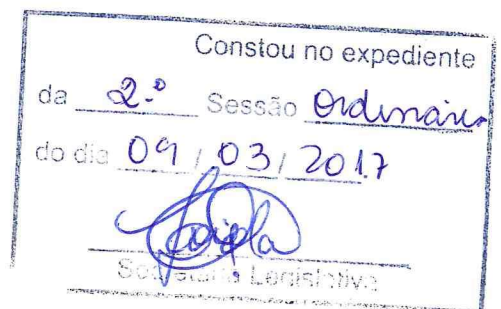 Constou no expediente
da 2.º Sessão Ordinária
do dia 09 / 03 / 2017
Secretaria Legislativa